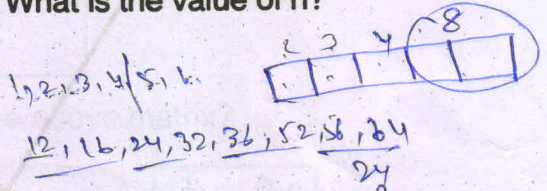 What is the value of n?
2 3 4 8
1, 2, 3, 4, 5, 6
12, 16, 24, 32, 36, 52, 56, 64
24